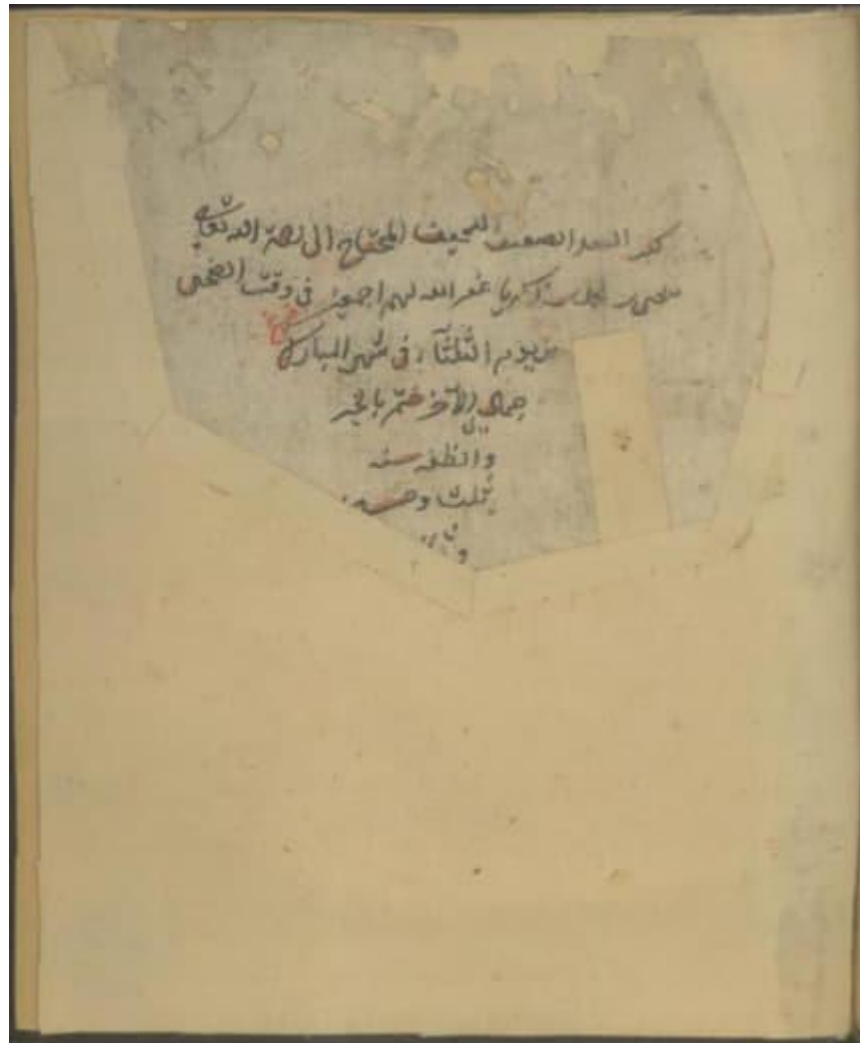 العبد الضعيف النحيف المحتاج الى رحمة الله تعالى
بن زكريا غفر الله لهم اجمعين فى وقت الضحى
من يوم الثلثآء فى شهر المبارك
جمادى الآخر ختم بالخير
والظفر سنه
ثلث و